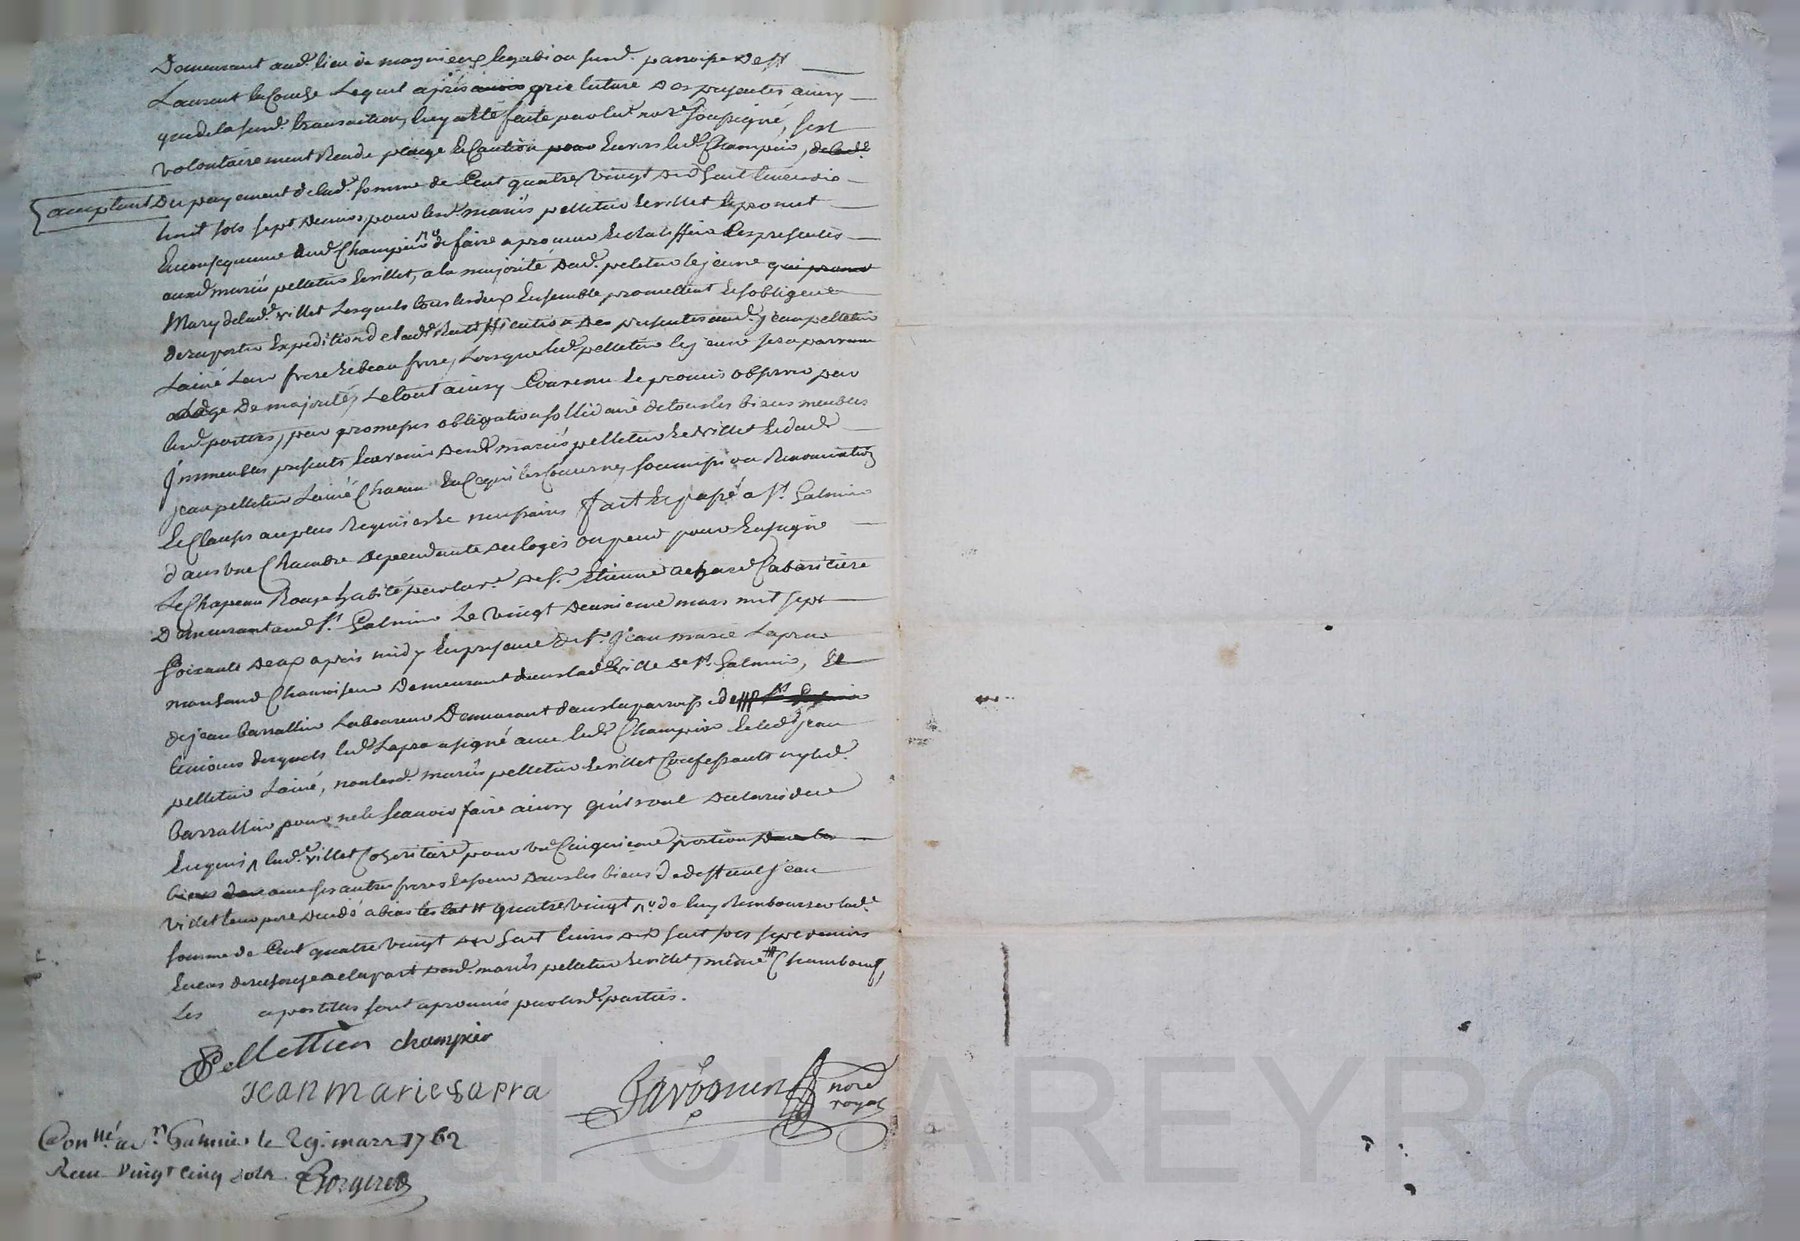 Demeurant aud. lieu de magnieux legabion surd. parroisse de St
Laurent la Conche Lequel après avoir pris lecture des presentes ainsy
que de la surd. transaction, luy a été faite par led. nore soussigné, s'est
volontairement Rendu pleige et Caution pour Envers led. Champier, de lad.
acceptant Du payement de lad. somme de Cent quatre vingt dix huit livres dix
huit sols sept deniers pour lesd. mariés pelletier et villet et promet
En consequence aud. Champier de faire aprouver et Ratiffier les presentes
auxd. mariés pelletier et villet, a la majorité dud. peletier le jeune qui promet
Mary de lad. villet Lesquels tous les deux Ensemble promettent et s'obligent
de raporter Expedition de lad. Ratiffication des presentes aud. jean pelletier
Lainé Leur frere et beau frere, Lorsque led. pelletier le jeune sera parvenu
a l'age de majorité, Le tout ainsy Convenu et promis observer par
lesd. parties, par promesses obligation sollidaire de tous les biens meubles
jmmeubles presents et avenir desd. mariés pelletier et villet et dud.
jean pelletier Lainé Chacun En ce qui les Concerne, soumission Renonciation
et Clauses au plus Requises et necessaires fait et passé a St. Galmier
dans une Chambre dependante du logis ou pend pour Enseigne
Le Chapeau Rouge habité par la ve. de Sr. Etienne Cabaretiere
Demeurant aud. St. Galmier Le vingt deuxieme mars mil sept
soixante deux après midy En presence de Sr. jean marie Lapra
marchand Demeurant dans lad. ville de St. Galmier, Et
de jean barrallier Laboureur Demeurant dans la parroisse de St. Galmier
temoins desquels led. Lapra a signé avec led. Champier et led. jean
pelletier Lainé, non lesd. mariés pelletier et villet Confessants ny led.
barrallier pour ne le scavoir faire ainsy qu'ils ont declaré de ce
Enquis lad. villet Coheritiere pour une Cinquieme portion dans les
biens avec ses autres freres et soeur dans les biens de deffunt jean
villet leur pere quatre vingt de luy Rembourser lad.
somme de Cent quatre vingt dix huit livres dix huit sols sept deniers
En cas de refus de la part desd. mariés pelletier et villet, Chamboeuf,
Les apostilles sont aprouvés par lesd. parties.
Pellettier champier
jean marie Lapra
nore
royal
Conllé a St Galmier le 29. mars 1762
Recu vingt cinq sols
J CHAREYRON